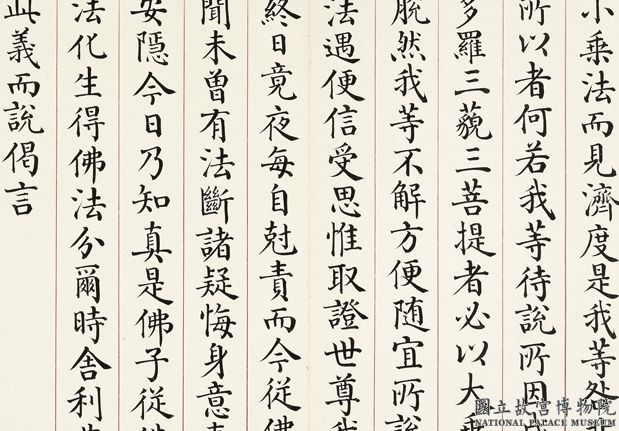 小乗法而見濟度是我等咎
所以者何若我等待說所因成
多羅三藐三菩提者必以大乗
脫然我等不解方便随宜所說
法遇便信受思惟取證世尊我
終日竟夜每自尅責而今從佛
聞未曾有法斷諸疑悔身意
安隱今日乃知真是佛子從
法化生得佛法分爾時舍利
此義而說偈言
國立故宮博物院
NATIONAL PALACE MUSEUM